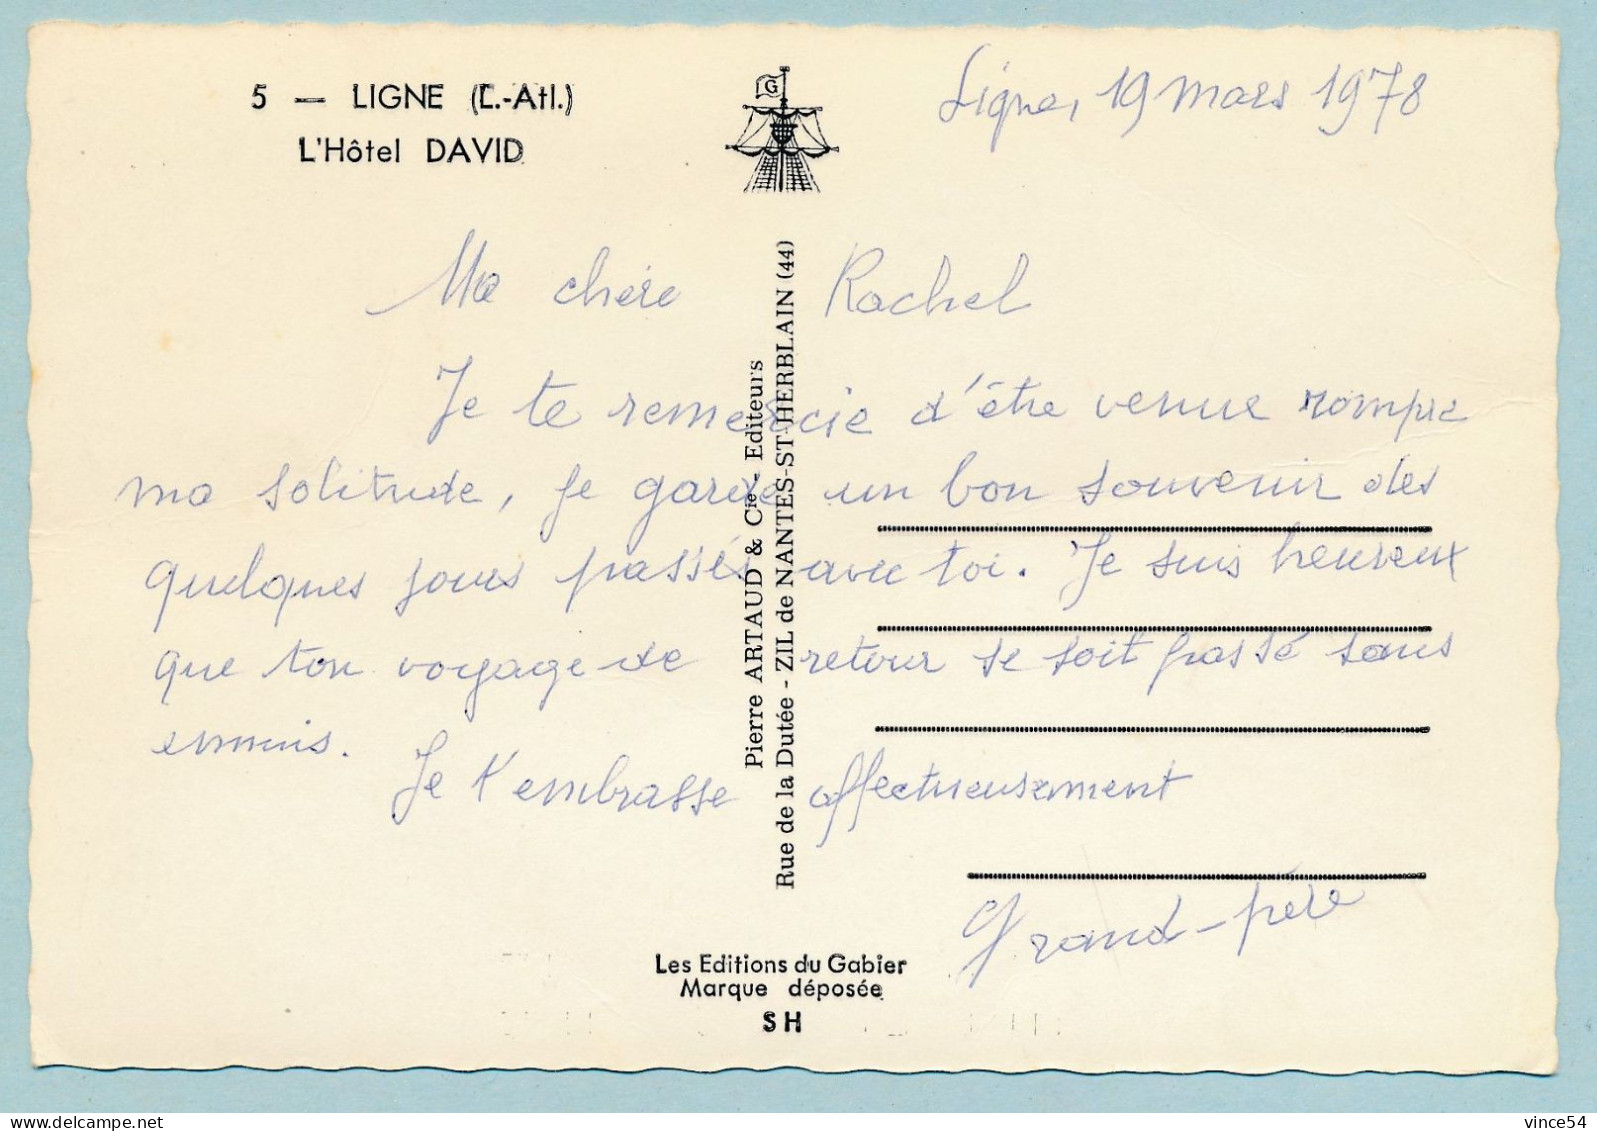 5 — LIGNE (L.-Atl.)
L'Hôtel DAVID
G
Ligne, 19 mars 1978
Ma chère Rachel
Je te remercie d'être venue rompre
ma solitude, je garde un bon souvenir des
quelques jours passés avec toi. Je suis heureux
que ton voyage de retour se soit passé sans
ennuis.
Je t'embrasse affectueusement
Grand-père
Pierre ARTAUD & Cie - Editeurs
Rue de la Dutée - ZIL de NANTES-ST-HERBLAIN (44)
Les Editions du Gabier
Marque déposée
SH
vince54